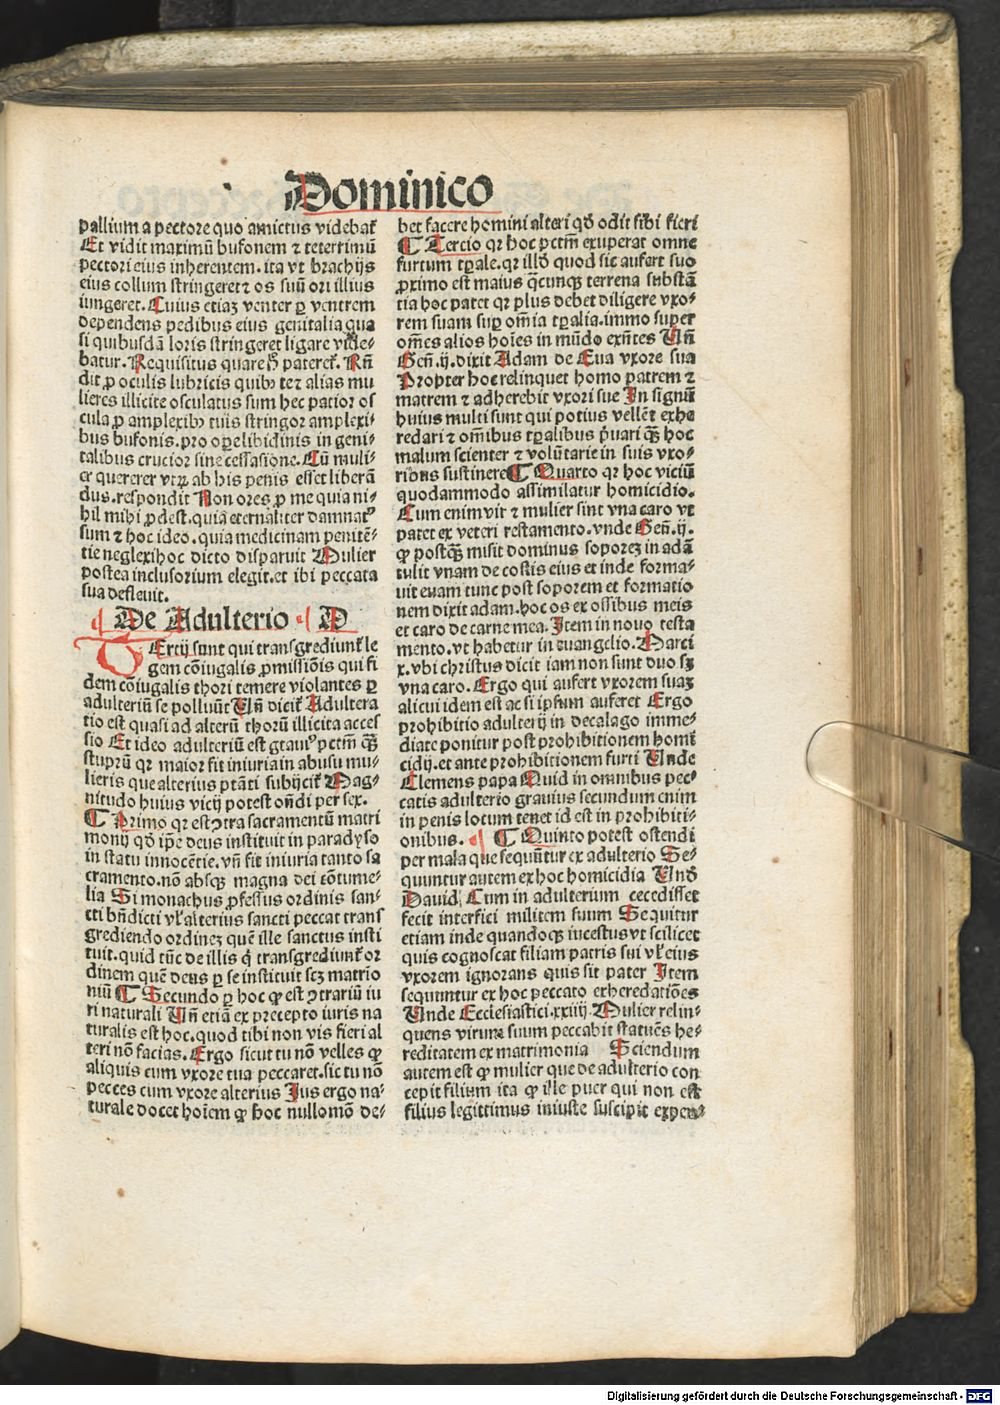 Dominico
pallium a pectore quo amictus videbat᷑
Et vidit maximū bufonem ⁊ teterrimū
pectori eius inherentem. ita vt brachijs
eius collum stringeret ⁊ os suū ori illius
iungeret. Cuius etiaȝ venter ꝑ ventrem
dependens pedibus eius genitalia qua
si quibusdā loris stringeret ligare vide⸗
batur. Requisitus quare
dit ꝓ oculis lubricis quibꝰ te ⁊ alias mu
lieres illicite osculatus sum hec patior os
cula ꝓ amplexibꝰ tuis stringor amplexi⸗
bus bufonis. pro oꝑe libidinis in geni⸗
talibus crucior sine cessasione. Cū muli⸗
er quereret vtꝝ ab his penis esset liberā
dus. respondit Non ores ꝓ me quia ni⸗
hil mihi ꝓdest. quia eternaliter damnatꝰ
sum ⁊ hoc ideo. quia medicinam penitē⸗
tie neglexi hoc dicto disparuit Mulier
postea inclusorium elegit. et ibi peccata
sua defleuit.
De Adulterio D
TErtij sunt qui transgrediunt᷑ le
gem cōiugalis ꝓmissiōis qui fi
dem cōiugalis thori temere violantes ꝑ
adulteriū se polluūt Uñ dicit᷑ Adultera
tio est quasi ad alterū thorū illicita acces
sio Et ideo adulteriū est grauiꝰ pctm̄ qᷓꝫ
stuprū qꝛ maior fit iniuria in abusu mu⸗
lieris que alterius ptāti subijcit᷑ Mag⸗
nitudo huius vicij potest oñdi per sex.
¶ Primo qꝛ est ꝯtra sacramentū matri
monij qd̛ ip̄e deus instituit in paradyso
in statu innocētie. vñ fit iniuria tanto sa
cramento. nō absqꝫ magna dei cōtume⸗
lia Si monachus ꝓfessus ordinis san⸗
cti bñdicti vl̛ alterius sancti peccat trans
grediendo ordineȝ quē ille sanctus insti
tuit. quid tūc de illis q̇ transgrediunt᷑ or
dinem quē deus ꝑ se instituit scȝ matrio
niū ¶ Secundo ꝑ hoc ꝙ est ꝯtrariū iu
ri naturali Uñ etiā ex precepto iuris na
turalis est hoc. quod tibi non vis fieri al
teri nō facias. Ergo sicut tu nō velles ꝙ
aliquis cum vxore tua peccaret. sic tu nō
pecces cum vxore alterius Jus ergo na⸗
turale docet hoīem ꝙ hoc nullomō de⸗
bet facere homini alteri qd̛ odit sibi fieri
¶ Tercio qꝛ hoc pctm̄ exuperat omne
furtum tꝑale. qꝛ illd̛ quod sic aufert suo
ꝓximo est maius qͨcunqꝫ terrena substā
tia hoc patet qꝛ plus debet diligere vxo⸗
rem suam suꝑ om̄ia tꝑalia. immo super
om̄es alios hoīes in mūdo exñtes Uñ
Geñ. ij. dixit Adam de Eua vxore sua
Propter hoc relinquet homo patrem ⁊
matrem ⁊ adherebit vxori sue In signū
huius multi sunt qui potius vellēt exhe
redari ⁊ om̄ibus tꝑalibus ṗuari qᷓꝫ hoc
malum scienter ⁊ volūtarie in suis vxo⸗
ribus sustinere ¶ Quarto qꝛ hoc viciū
quodammodo assimilatur homicidio.
Cum enim vir ⁊ mulier sint vna caro vt
patet ex veteri testamento. vnde Geñ. ij.
ꝙ postqᷓꝫ misit dominus soporeȝ in adā
tulit vnam de costis eius et inde forma⸗
uit euam tunc post soporem et formatio
nem dixit adam. hoc os ex ossibus meis
et caro de carne mea. Item in nouo testa
mento. vt habetur in euangelio. Marci
x. vbi christus dicit iam non sunt duo sȝ
vna caro. Ergo qui aufert vxorem suaȝ
alicui idem est ac si ipsum auferet Ergo
prohibitio adulterij in decalago imme⸗
diate ponitur post prohibitionem homi
cidij. et ante prohibitionem furti Unde
Clemens papa Quid in omnibus pec⸗
catis adulterio grauius secundum enim
in penis locum tenet id est in prohibiti⸗
onibus. ¶ Quinto potest ostendi
per mala que sequūtur ex adulterio Se⸗
quuntur autem ex hoc homicidia Und̛
Dauid Cum in adulterium cecedisset
fecit interfici militem suum Sequitur
etiam inde quandoqꝫ incestus vt scilicet
quis cognoscat filiam patris sui vl̛ eius
vxorem ignorans quis sit pater Item
sequuntur ex hoc peccato exheredatiōes
Unde Ecclesiastici. xxiij. Mulier relin⸗
quens virum suum peccabit statuēs he⸗
reditatem ex matrimonia Sciendum
autem est ꝙ mulier que de adulterio con
cepit filium ita ꝙ ille puer qui non est
filius legittimus iniuste suscipit expen⸗
Digitalisierung gefördert durch die Deutsche Forschungsgemeinschaft - DFG